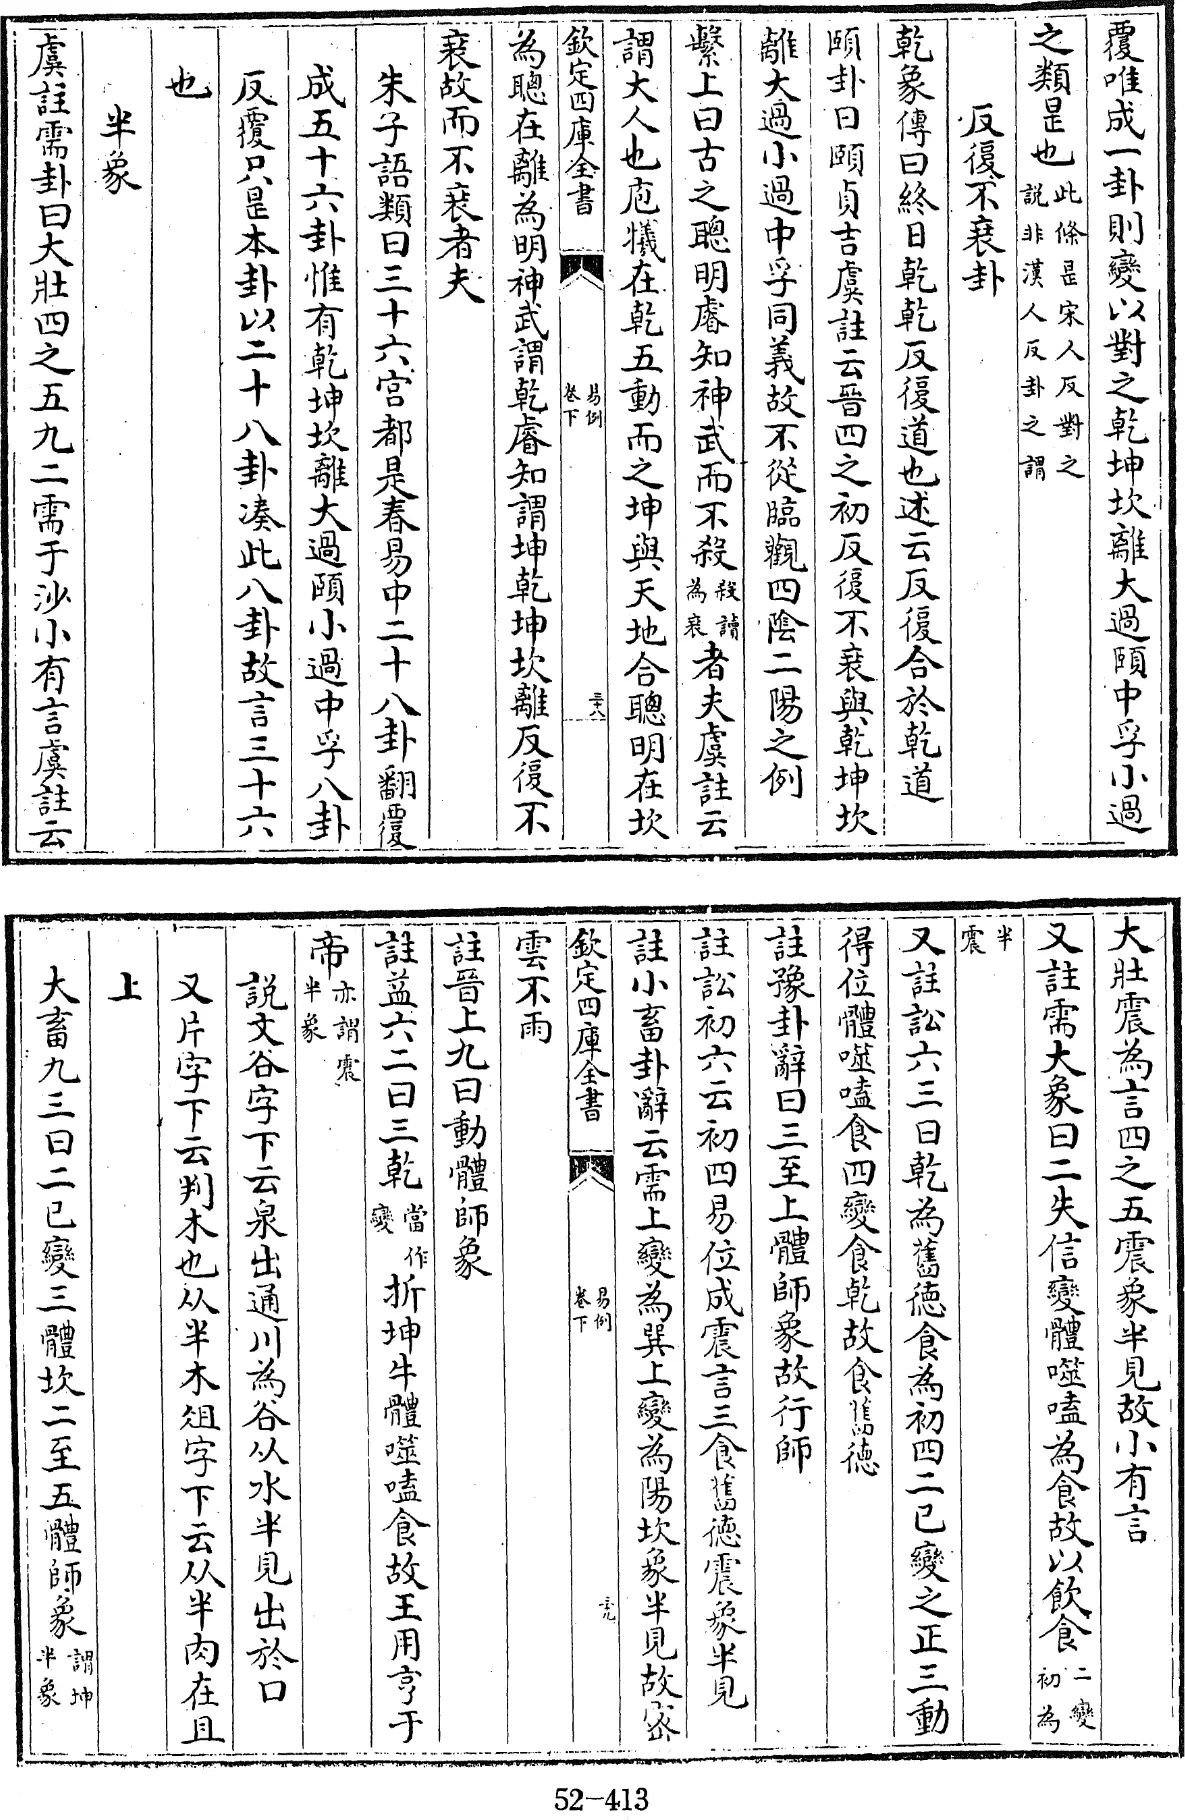 覆唯成一卦則變以對之乾坤坎離大過頤中孚小過
之類是也此條是宋人反對之說非漢人反卦之謂
反復不衰卦
乾象傳曰終日乾乾反復道也述云反復合於乾道
頤卦曰頤貞吉虞註云晉四之初反復不衰與乾坤坎
離大過小過中孚同義故不從臨觀四陰二陽之例
繫上曰古之聰明睿知神武而不殺殺讀為衰者夫虞註云
謂大人也庖犧在乾五動而之坤與天地合聰明在坎
欽定四庫全書 易例卷下 三十八
為聰在離為明神武謂乾睿知謂坤乾坤坎離反復不
衰故而不衰者夫
朱子語類曰三十六宮都是春易中二十八卦翻覆
成五十六卦惟有乾坤坎離大過頤小過中孚八卦
反覆只是本卦以二十八卦凑此八卦故言三十六
也
半象
虞註需卦曰大壯四之五九二需于沙小有言虞註云
大壯震為言四之五震象半見故小有言
又註需大象曰二失信變體噬嗑為食故以飲食二變初為
半震
又註訟六三曰乾為舊德食為初四二已變之正三動
得位體噬嗑食四變食乾故食舊德
註豫卦辭曰三至上體師象故行師
註訟初六云初四易位成震言三食舊德震象半見
註小畜卦辭云需上變為巽上變為陽坎象半見故密
欽定四庫全書 易例卷下 三十九
雲不雨
註晉上九曰動體師象
註益六二曰三乾當作變折坤牛體噬嗑食故王用亨于
帝亦謂震半象
說文谷字下云泉出通川為谷从水半見出於口
又片字下云判木也从半木俎字下云从半肉在且
上
大畜九三曰二已變三體坎二至五體師象謂坤半象
52-413